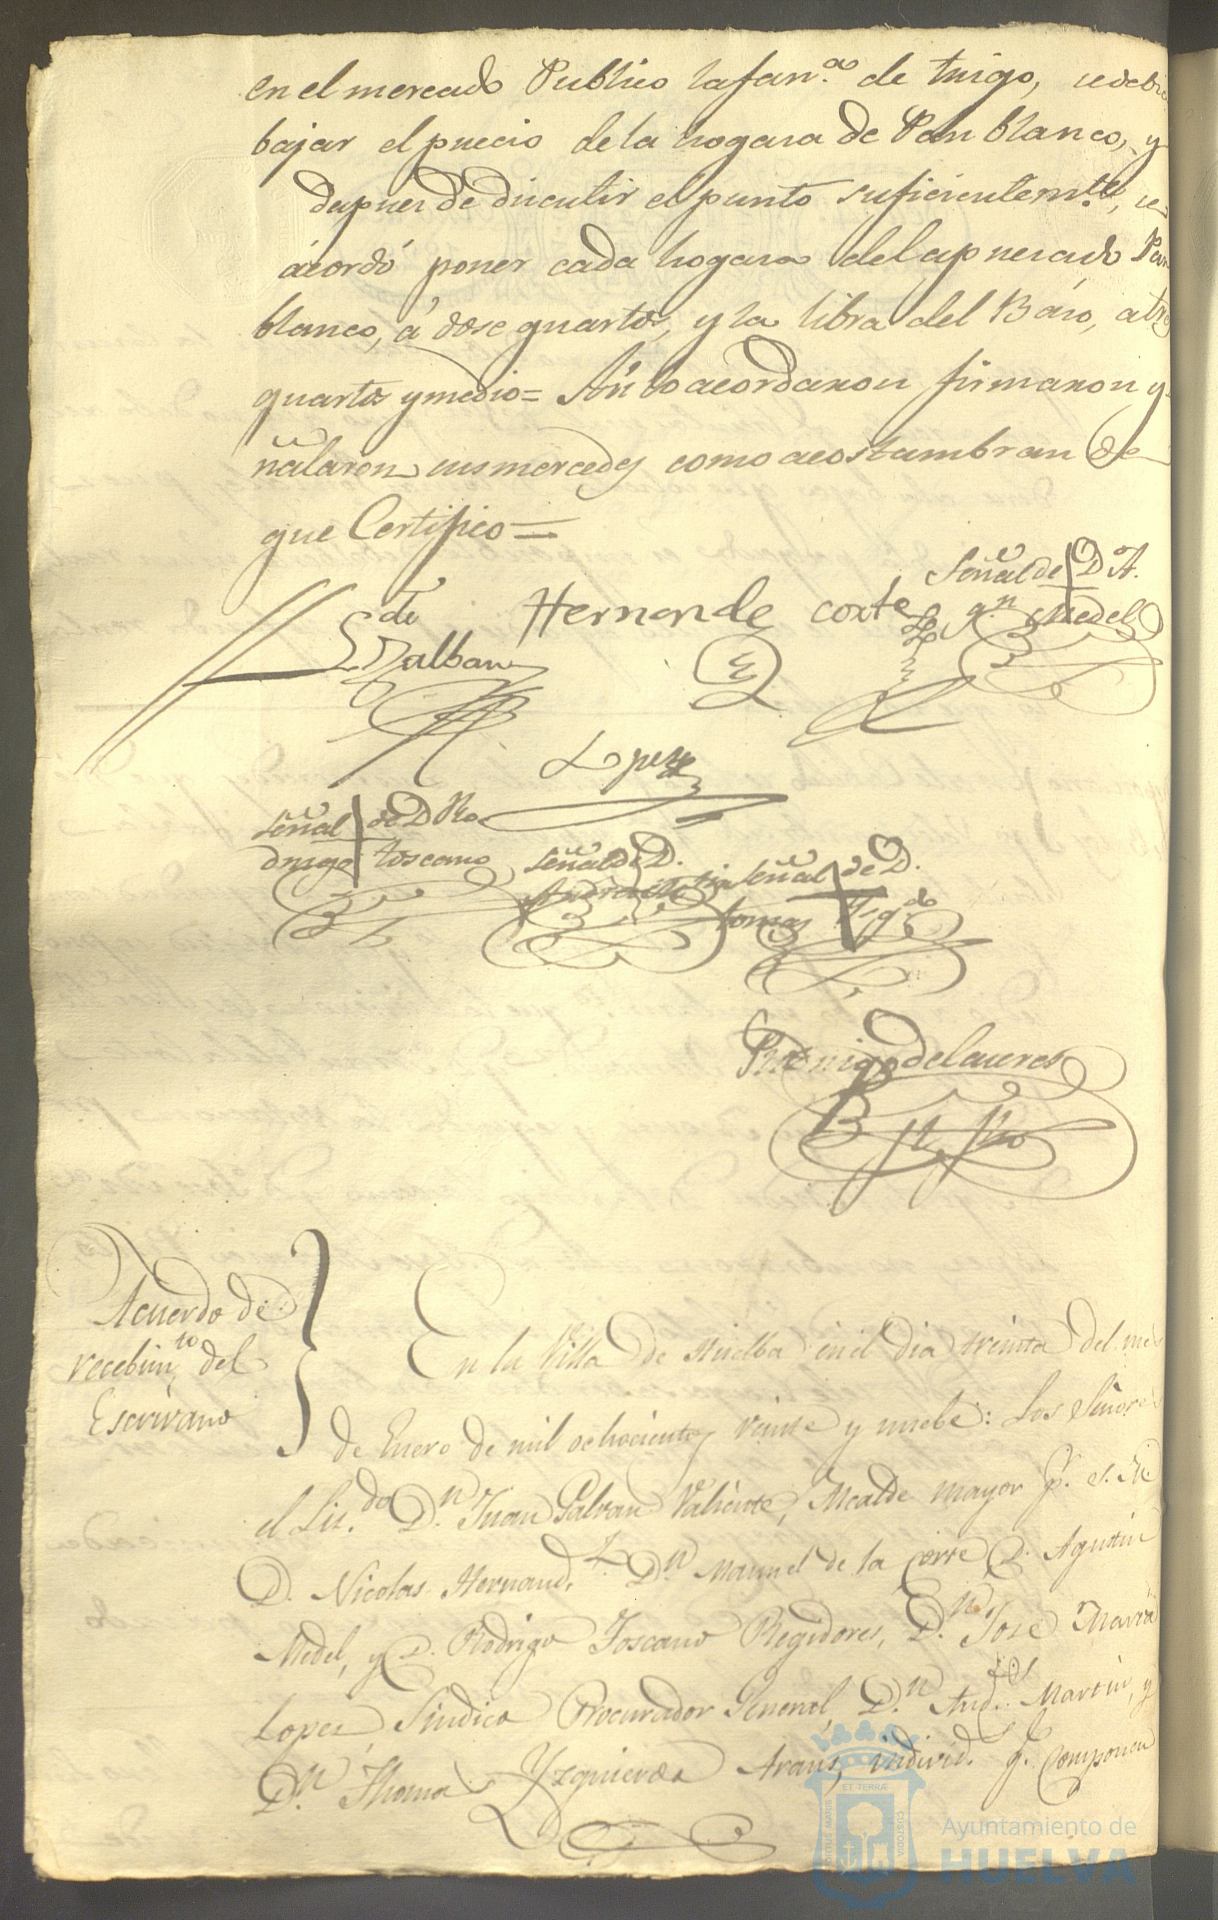 en el mercado Publico la fan.as de trigo, se debia
bajar el precio de la hogasa de Pan blanco, y
depues de discutir el punto suficientem.te, se
ácordó poner cada hogasa del apresiado Pan
blanco, á dose quartos, y la libra del Baso, a tres
quartos y medio = Así lo acordaron firmaron y
ñalaron sus mercedes como acostumbran de
que Certifico =
Señal de D A.
de Hernande corte
gn Medel
Galban
Lopez
Señal de D Ro
drigo toscano
Señal de D.
Señal de D.
tomas
Acuerdo de
recebim.to del
Escrivano
En la Villa de Huelba en el dia treinta del mes
de Enero de mil ochocientos veinte y nuebe: Los Señores
el Lic.do D.n Juan Galvan Valiente, Alcalde mayor p.r S. M.
D. Nicolas Hernand.z D.n Manuel de la Corte D. Agustin
Medel, y D. Rodrigo Toscano Regidores, D.n Jose Maria
Lopez Sindico Procurador General, D.n And.s Martin, y
D.n Thomas Yzquierdo Arauz, individ.s q.e componen
ET TERRÆ
PORTUS MARIS
CUSTODIA
Ayuntamiento de
HUELVA